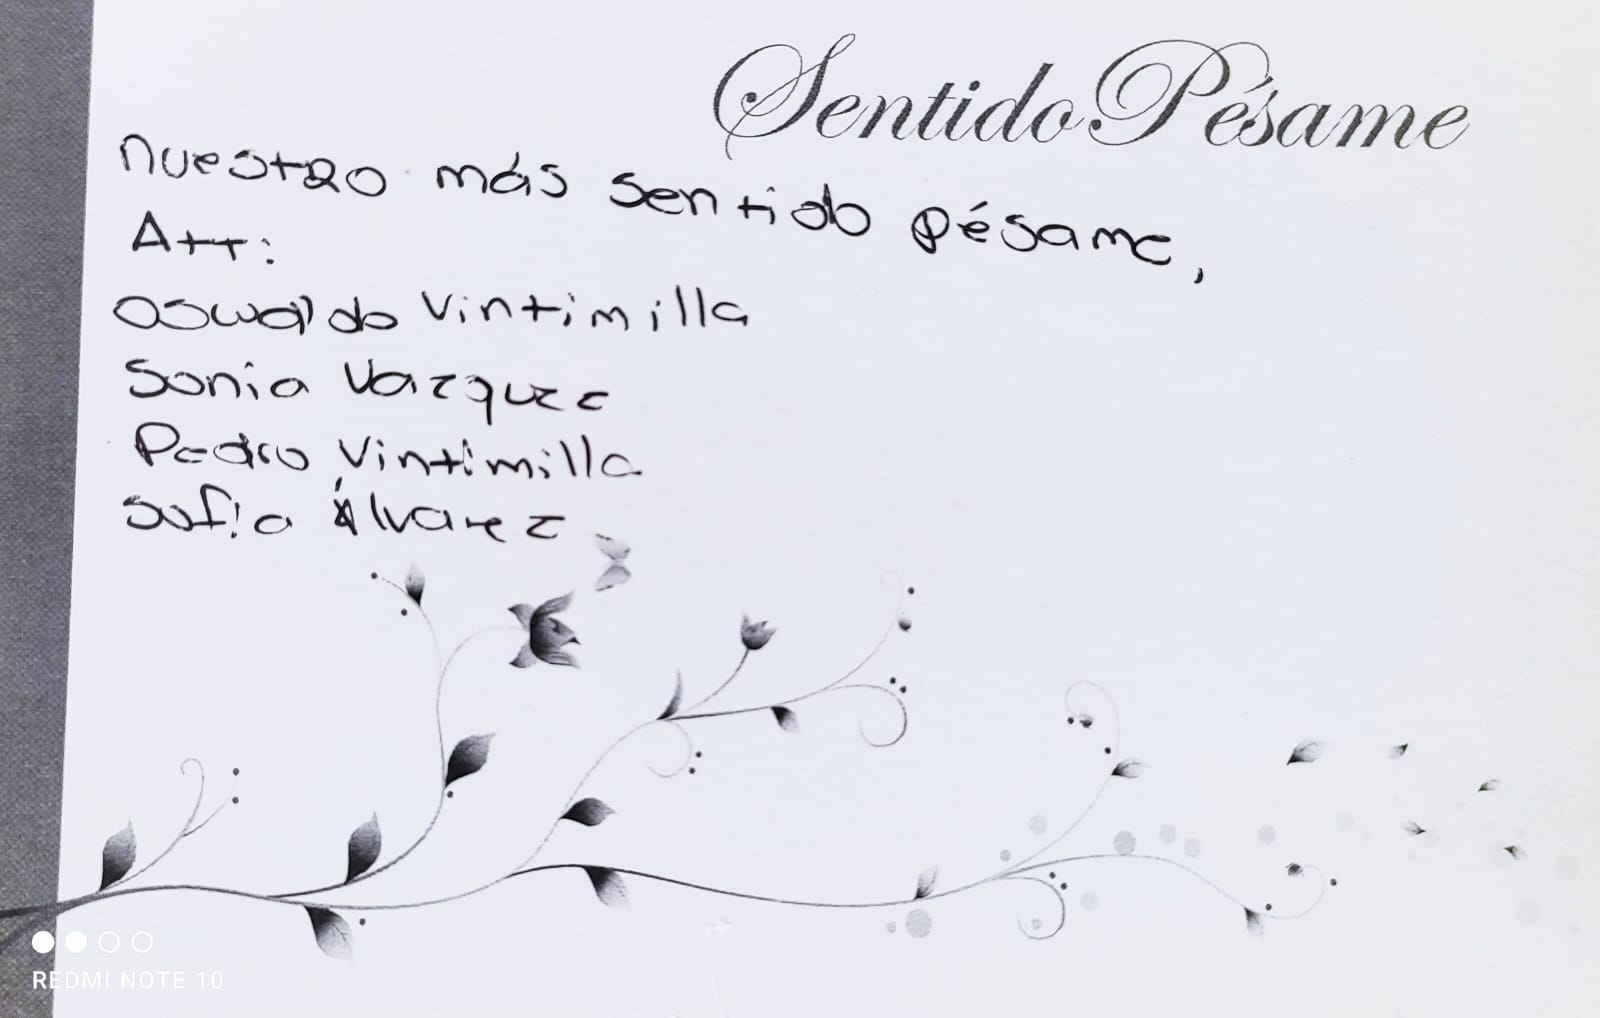 Sentido Pésame
Nuestro más sentido pésame,
Att:
Oswaldo Vintimilla
Sonia Vazquez
Pedro Vintimilla
Sofia Álvarez
REDMI NOTE 10